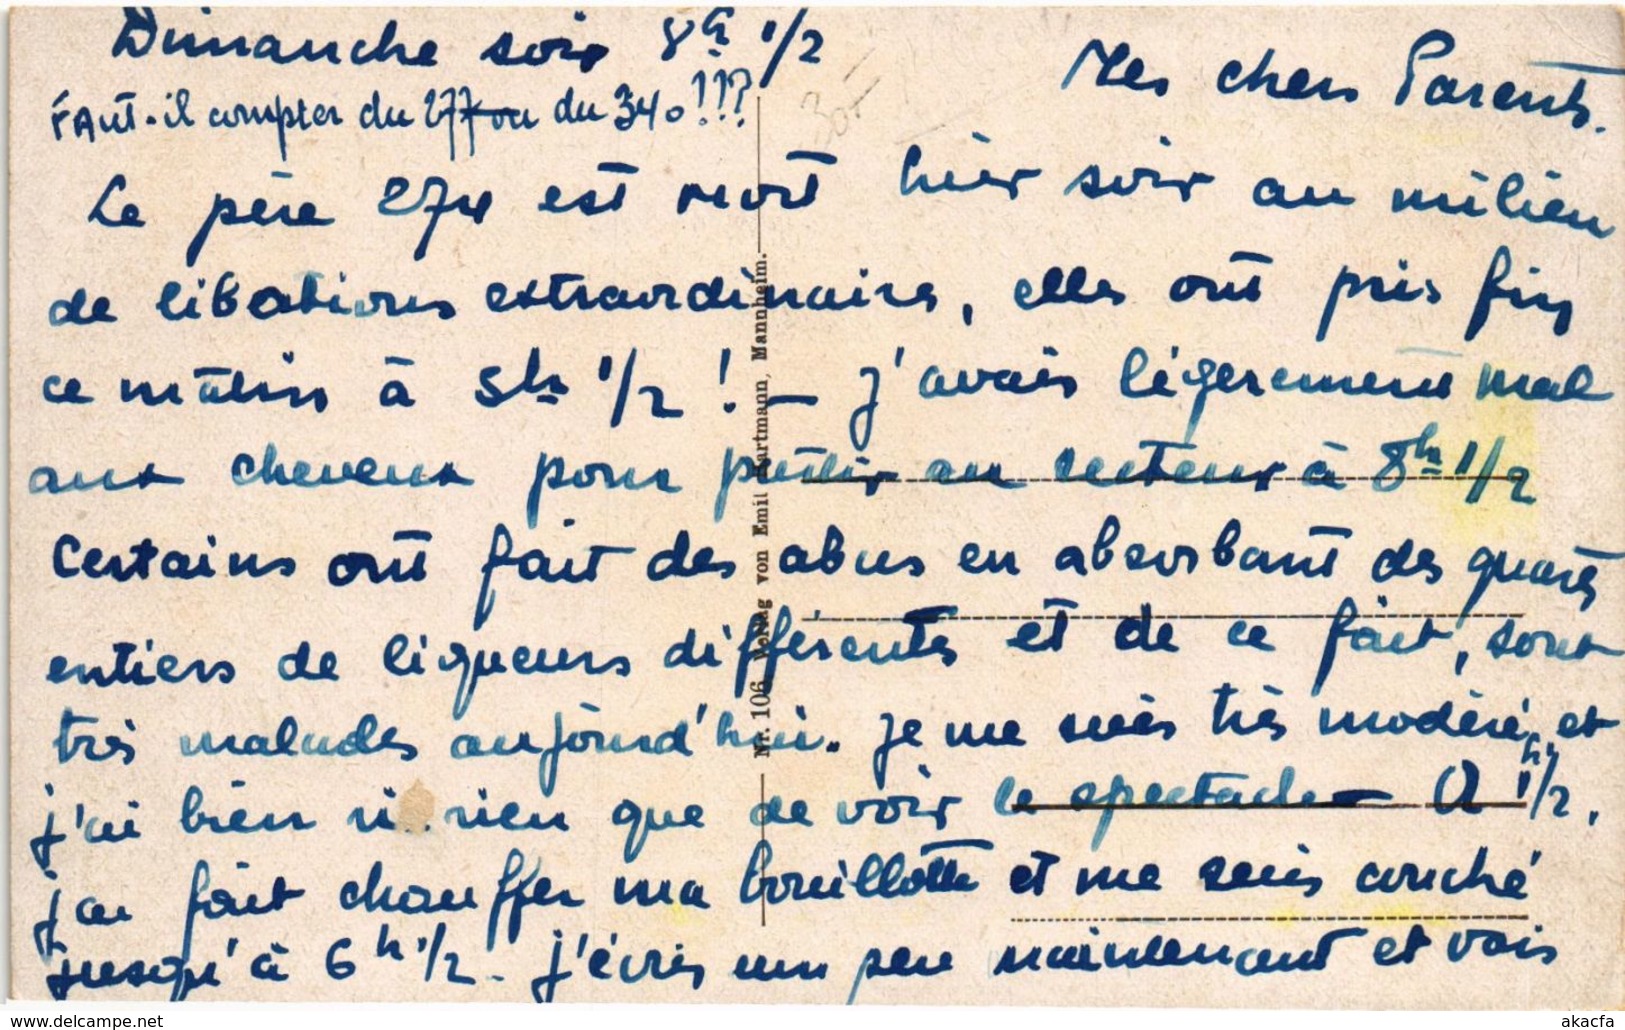 Dimanche soir 8h 1/2
Mes chers Parents.
FAUT-il compter du 277 ou du 340!!??
30-
Le père 274 est mort hier soir au milieu
de libations extraordinaires, elles ont pris fin
ce matin à 5h 1/2 ! - J'avais légèrement mal
aux cheveux pour partir au secteur à 8h 1/2
Certains ont fait des abus en absorbant des quarts
entiers de liqueurs différentes et de ce fait, sont
très malades aujourd'hui. Je me suis très modéré, et
j'ai bien ri rien que de voir le spectacle. A 1h 1/2,
j'ai fait chauffer ma bouillotte et me suis couché
jusqu'à 6h 1/2 - J'écris un peu maintenant et vais
Nr. 106 Verlag von Emil Hartmann, Mannheim.
www.delcampe.net
akacfa